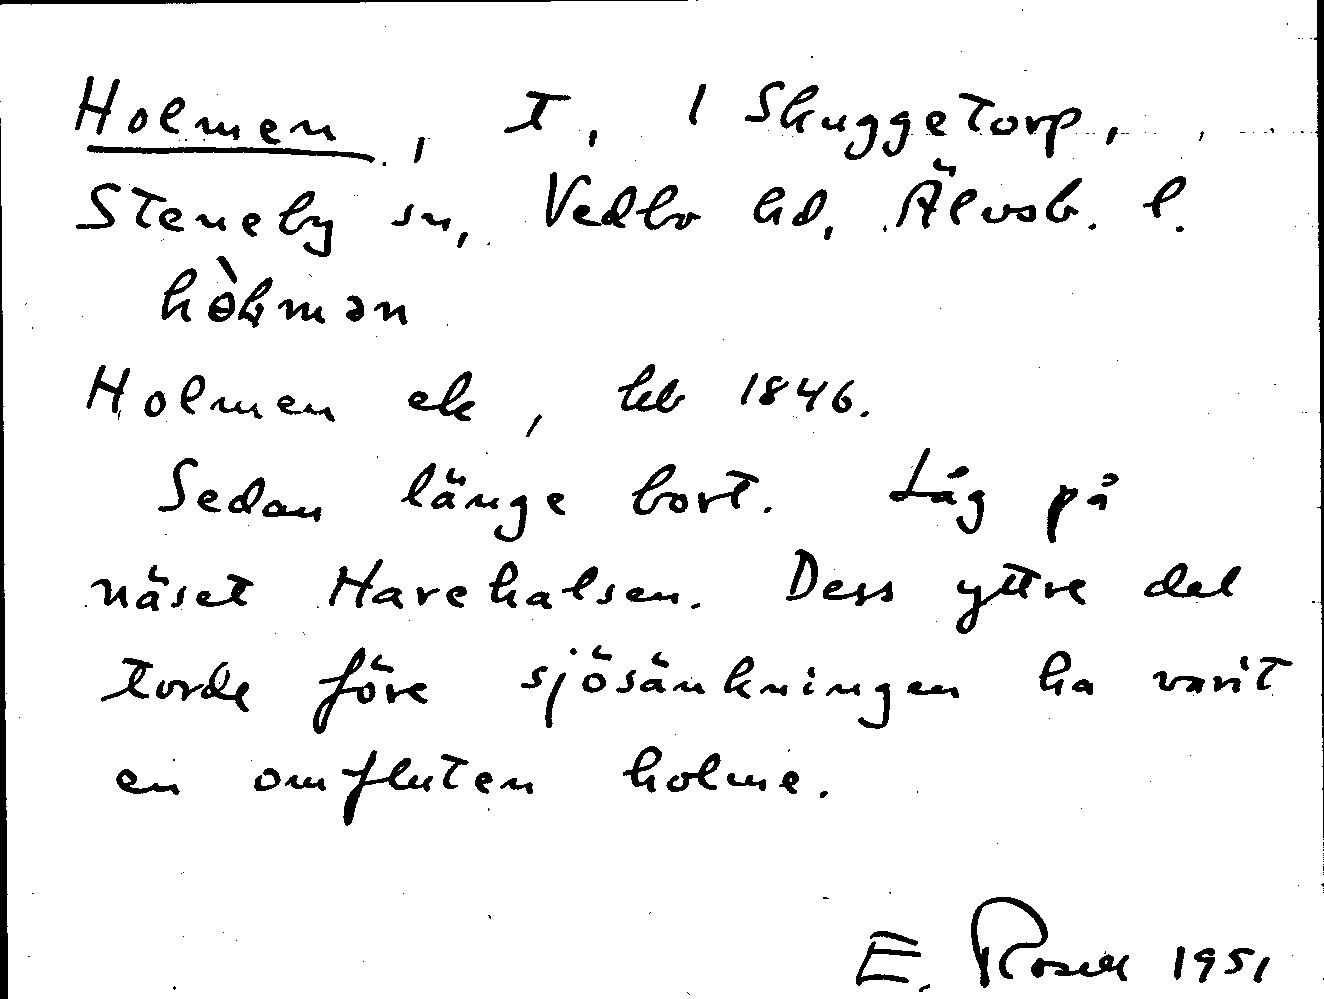 Holmen, t, 1 Skuggetorp,
Steneby sn, Vedbo hd, Älvsb. l.
Holmen ek, hb 1846.
Sedan länge bort. Låg på
näset Harehalsen. Dess yttre del
torde före sjösänkningen ha varit
en omfluten holme.
E. Rosell 1951